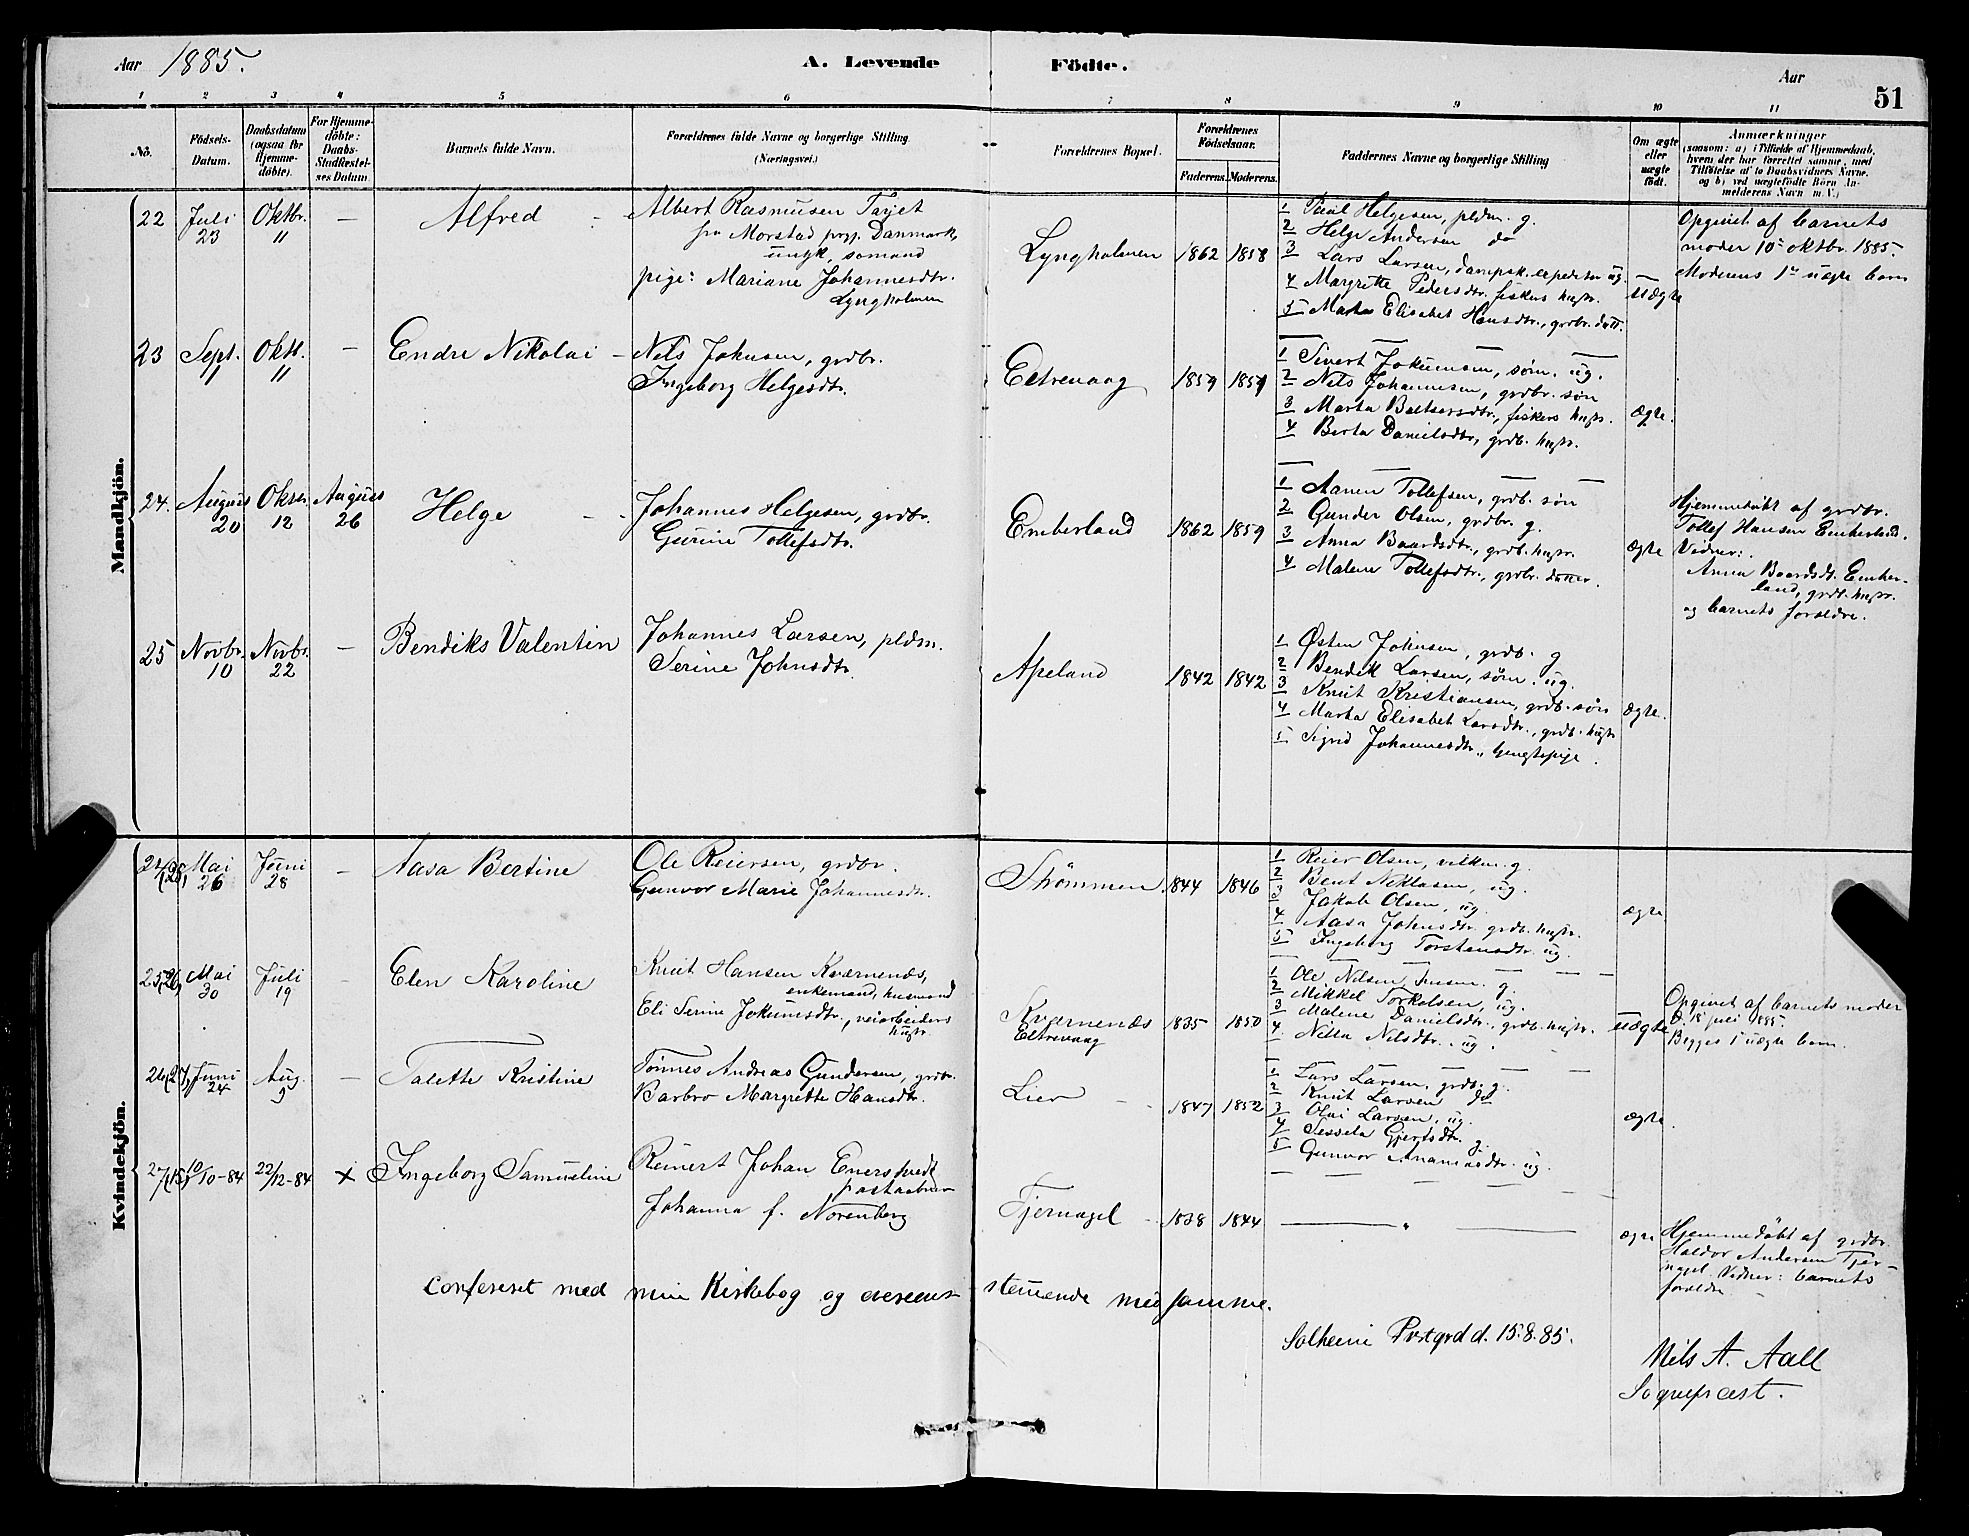 Aar 1885.
A. Levende Födte.
Aar
51
1 2 3 4 5 6 7 8 9 10 11
No.
Födsels-Datum.
Daabsdatum (ogsaa for Hjemmedöbte).
For Hjemmedöbte: Daabs-Stadfæstelses Datum
Barnets fulde Navn.
Forældrenes fulde Navne og borgerlige Stilling (Næringsvei.)
Forældrenes Bopæl.
Forældrenes Födselsaar.
Faderens. Moderens.
Faddernes Navne og borgerlige Stilling
Om ægte eller uægte födt.
Anmærkninger
(saasom: a) i Tilfælde af Hjemmedaab, hvem der har forrettet samme, med Tilföielse af to Daabsvidners Navne, og b) ved uægtefödte Börn Anmelderens Navn m. V.)
Mandkjön.
22 Juli 23 Oktbr. 11 — Alfred
Albert Rasmusen
fra Morstad Danmark,
ungk, sømand
pige: Mariane Johannesdtr.
Lyngholmen
Lyngholmen 1862 1858
1 Paul Helgesen, pldm. g.
2 Helge Andersen do
3 Lars Larsen, dampsk. expeditør ug.
4 Margrette Pedersdtr. fiskers hustr.
5 Marta Elisabet Hansdtr., grdbr. datt.
uægte
Opgivet af barnets
moder 10de oktbr. 1885.
Moderens 1ste uægte barn
23 Sept. 11 Oktb. 11 — Endre Nikolai
Nils Johnsen, grdbr.
Ingeborg Helgesdtr.
Eltrevaag 1859 1859
1 Sivert Jokumsen, søm. ug.
2 Nils Johannesen, grdbr. søn
3 Marta Baltsersdtr., fiskers hustr.
4 Berta Danielsdtr, grdb. hustr.
ægte.
24. August 20 Oktbr 12 August 26 Helge
Johannes Helgesen, grdbr.
Gurine Tollefsdtr.
Emberland 1862 1859
1 Aanen Tollefsen, grdb. søn
2 Gunder Olsen, grdbr. g.
3 Anna Baardsdtr., grdb. hustr.
4 Malene Tollefsdtr., grdbr. datter.
ægte
Hjemmedøbt af grdbr.
Tollef Hansen Emberland.
Vidner:
Anna Baardsdt. Ember-
land, grdb. hustr.
og barnets forældre.
25 Novbr. 10 Novbr. 22 — Bendiks Valentin
Johannes Larsen, pldm.
Serine Johnsdtr.
Apeland 1842 1842
1 Østen Johnsen, grdb. g
2 Bendik Larsen, søm. ug.
3 Knut Kristiansen, grdb. søn
4 Marta Elisabet Larsdtr., grdb. hustr
5 Sigrid Johannesdtr.,
ægte.
Kvindekjön.
24/(25) Mai 26 Juni 28 — Aasa Bertine
Ole Reiersen, grdbr.
Gunvor Marie Johannesdtr.
Strømmen 1844 1846
1 Reier Olsen, g
2 Bent Niklasen, ug.
3 Jakob Olsen, ug.
4 Aasa Johnsdtr. grdb. hustr.
5 Ingeborg Torstensdtr. ug.
ægte
25/(26) Mai 30 Juli 19 Elen Karoline
Knut Hansen Kværnenæs,
enkemand, husmand
Eli Serine Jokumsdtr., veiarbeiders
hustr.
Kværnenæs
Eltrevaag
1835 1850
1 Ole Nilsen, husm. g.
2 Mikkel Torkelsen, ug.
3 Malene Danielsdtr., grdb. hustr.
4. Nilla Nilsdtr., ug.
uægte
Opgivet af barnets moder
d. 18 juli 1885.
Begges 1 uægte barn.
26(27) Juni 24 Aug. 9 — Talette Kristine
Tønnes Andreas Gundersen, grdbr.
Barbro Margrette Hansdtr.
Lier 1847 1852
1 Lars Larsen, grdb. g.
2 Knut Larsen do
3 Olai Larsen, ug.
4 Sessela Gjertsdtr. g.
5 Gunvor Ananiasdtr. ug.
ægte.
27/(15) 10/10-84 22/12-84 x Ingeborg Samueline
Reinert Johan Enerstvedt
postaabner
Johanna f. Norenberg
Tjernagel 1838 1844
ægte
Hjemmedøbt af grdbr.
Haldor Andersen Tjer-
nagel. Vidner: barnets
forældre
Confereret med min Kirkebog og overeens-
stemmende med samme.
Solheim Prstgrd d. 15.8.85.
Nils A. Aall
Sognepræst.